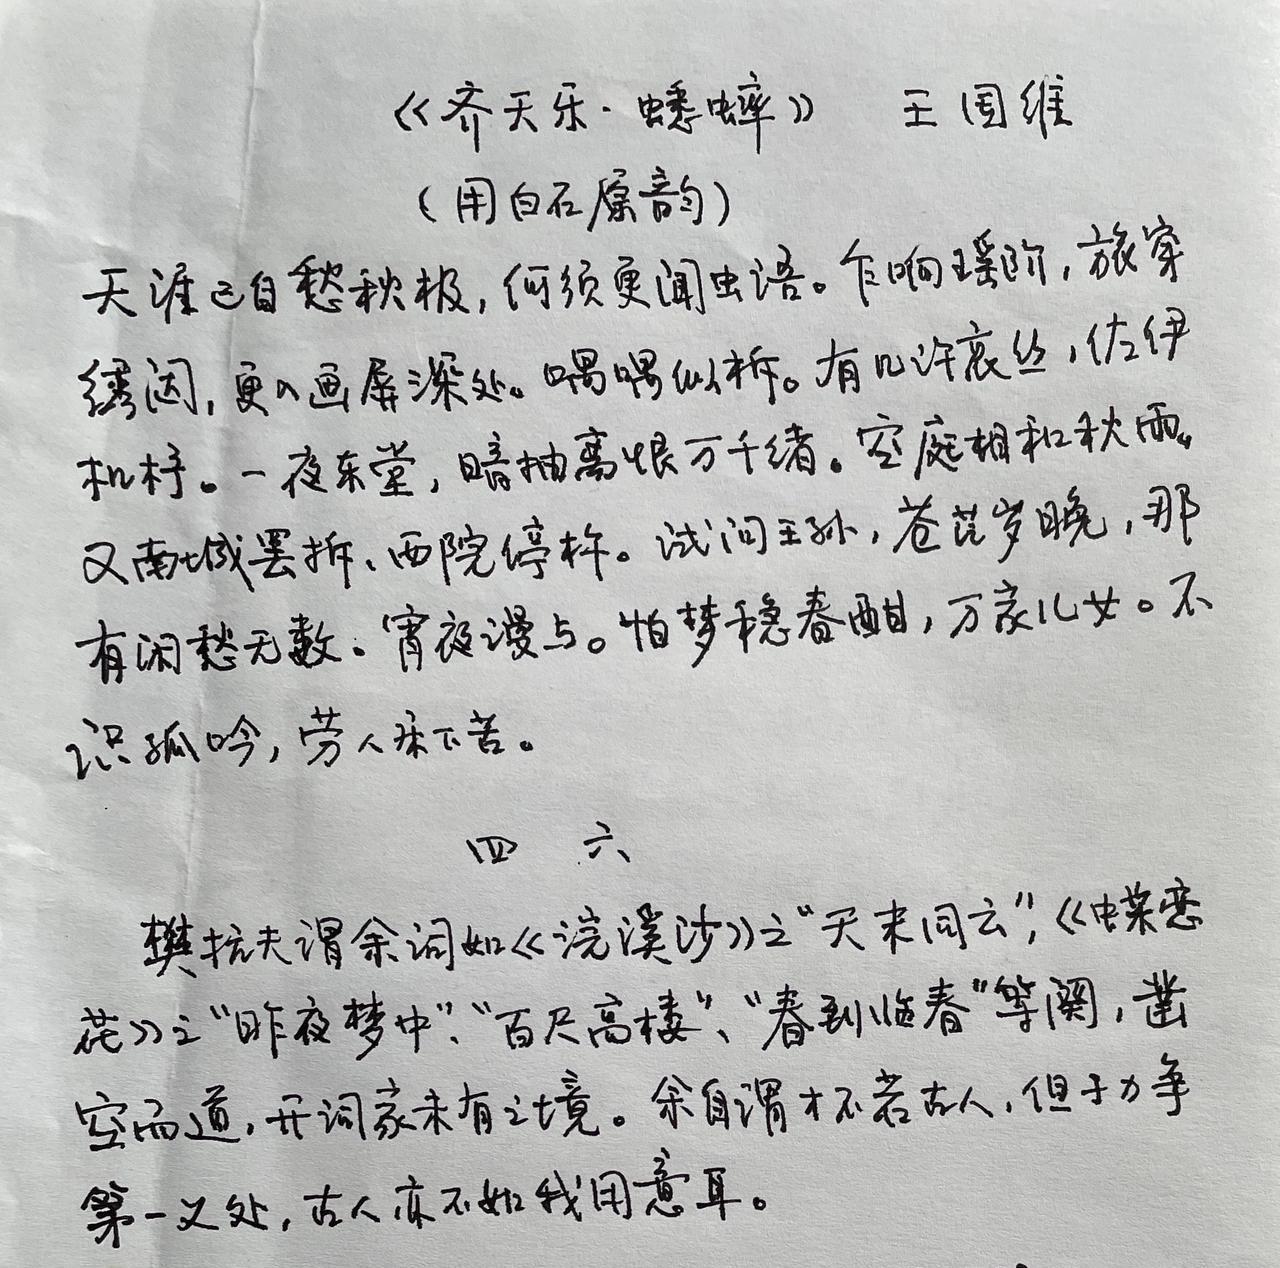 《齐天乐·蟋蟀》 王国维
(用白石原韵)
天涯已自愁秋极,何须更闻虫语。乍响瑶阶,旅穿
绣闼,更入画屏深处。喁喁似柝。有几许哀丝,佐伊
机杼。一夜东堂,暗抽离恨万千绪。空庭相和秋雨。
又南城罢拆、西院停杵。试问王孙,苍茫岁晚,那
有闲愁无数。宵夜漫与。怕梦稳春酣,万家儿女。不
识孤吟,劳人床下苦。
四 六
樊抗夫谓余词如《浣溪沙》之“天末同云”,《蝶恋
花》之“昨夜梦中”、“百尺高楼”、“春到临春”等阕,凿
空而道,开词家未有之境。余自谓才不若古人,但于力争
第一义处,古人亦不如我用意耳。